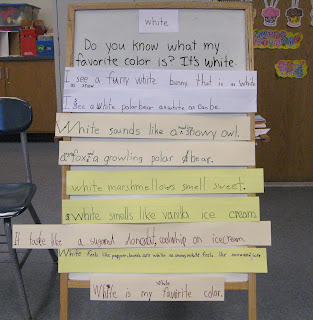 white
Do you know what my
favorite color is? It's white.
I see a furry white bunny that is as white
as snow
I see a white polar bear as white as can be.
White sounds like a snowy owl.
a fox a growling polar bear.
white marshmellows smell sweet.
White smells like vanilla ice cream
It taste like a sugared donut, whip on icecream.
White feels like
White is my favorite color.